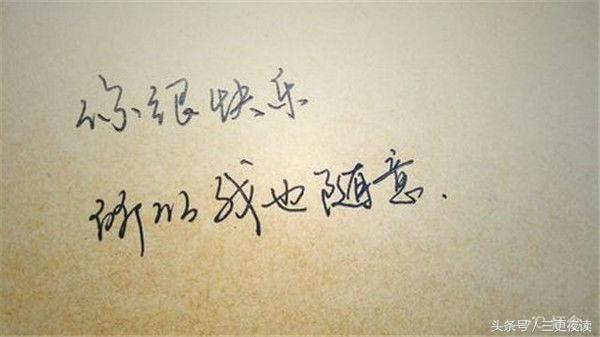 你很快乐
所以我也随意.
头条号/三更夜读